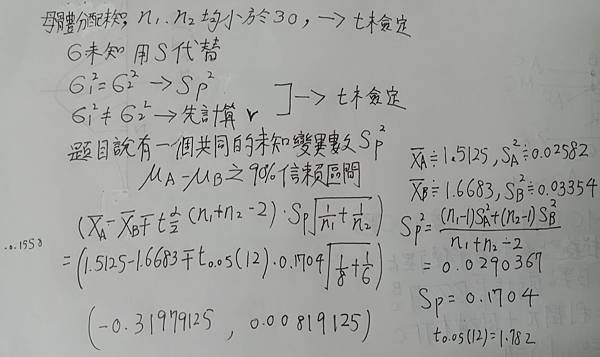 母體分配未知, n₁.n₂均小於30, → t檢定
σ未知 用S代替
σ₁²=σ₂² → Sp²
σ₁²≠σ₂² → 先計算 r
→ t檢定
題目說有一個共同的未知變異數 Sp²
μA-μB之90%信賴區間
(X̄A-X̄B∓t α/2 (n₁+n₂-2)·Sp√(1/n₁+1/n₂))
-0.1558
=(1.5125-1.6683∓t0.05(12)·0.1704√(1/8+1/6))
(-0.31979125, 0.00819125)
X̄A≒1.5125, SA²≒0.02582
X̄B≒1.6683, SB²≒0.03354
Sp²=((n₁-1)SA²+(n₂-1)SB²)/(n₁+n₂-2)
=0.0290367
Sp=0.1704
t0.05(12)=1.782